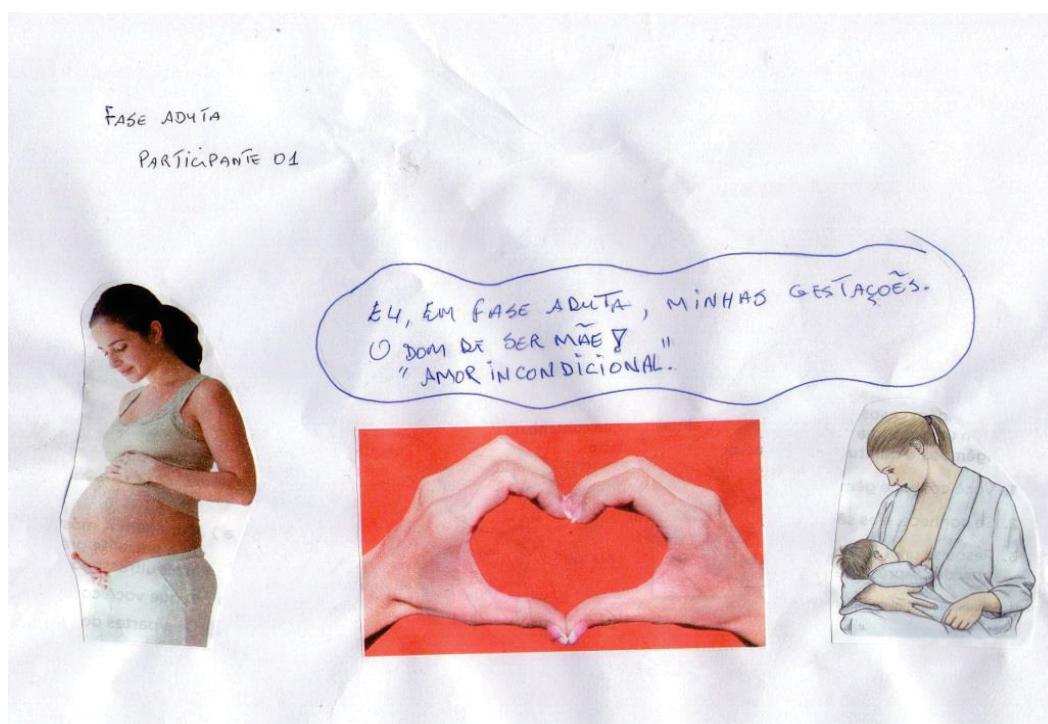 FASE ADUTA
PARTICIPANTE 01
EU, EM FASE ADUTA, MINHAS GESTAÇÕES.
O DOM DE SER MÃE!
"AMOR INCONDICIONAL."